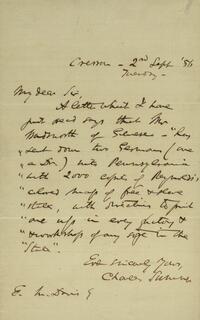 Cresson - 2nd Sept '56
Tuesday -
My dear Sir,
A letter which I have
just read says that Mr
Wadsworth of Geneseo - "has
sent down two Germans (one
a Dr.) into Pennsylvania
with 2000 copies of Reynolds's
colored map of free & slave
states, with directions to put
one up in every factory &
workshop of any size in the
State."
Ever sincerely Yours,
Charles Sumner
E. M. Davis